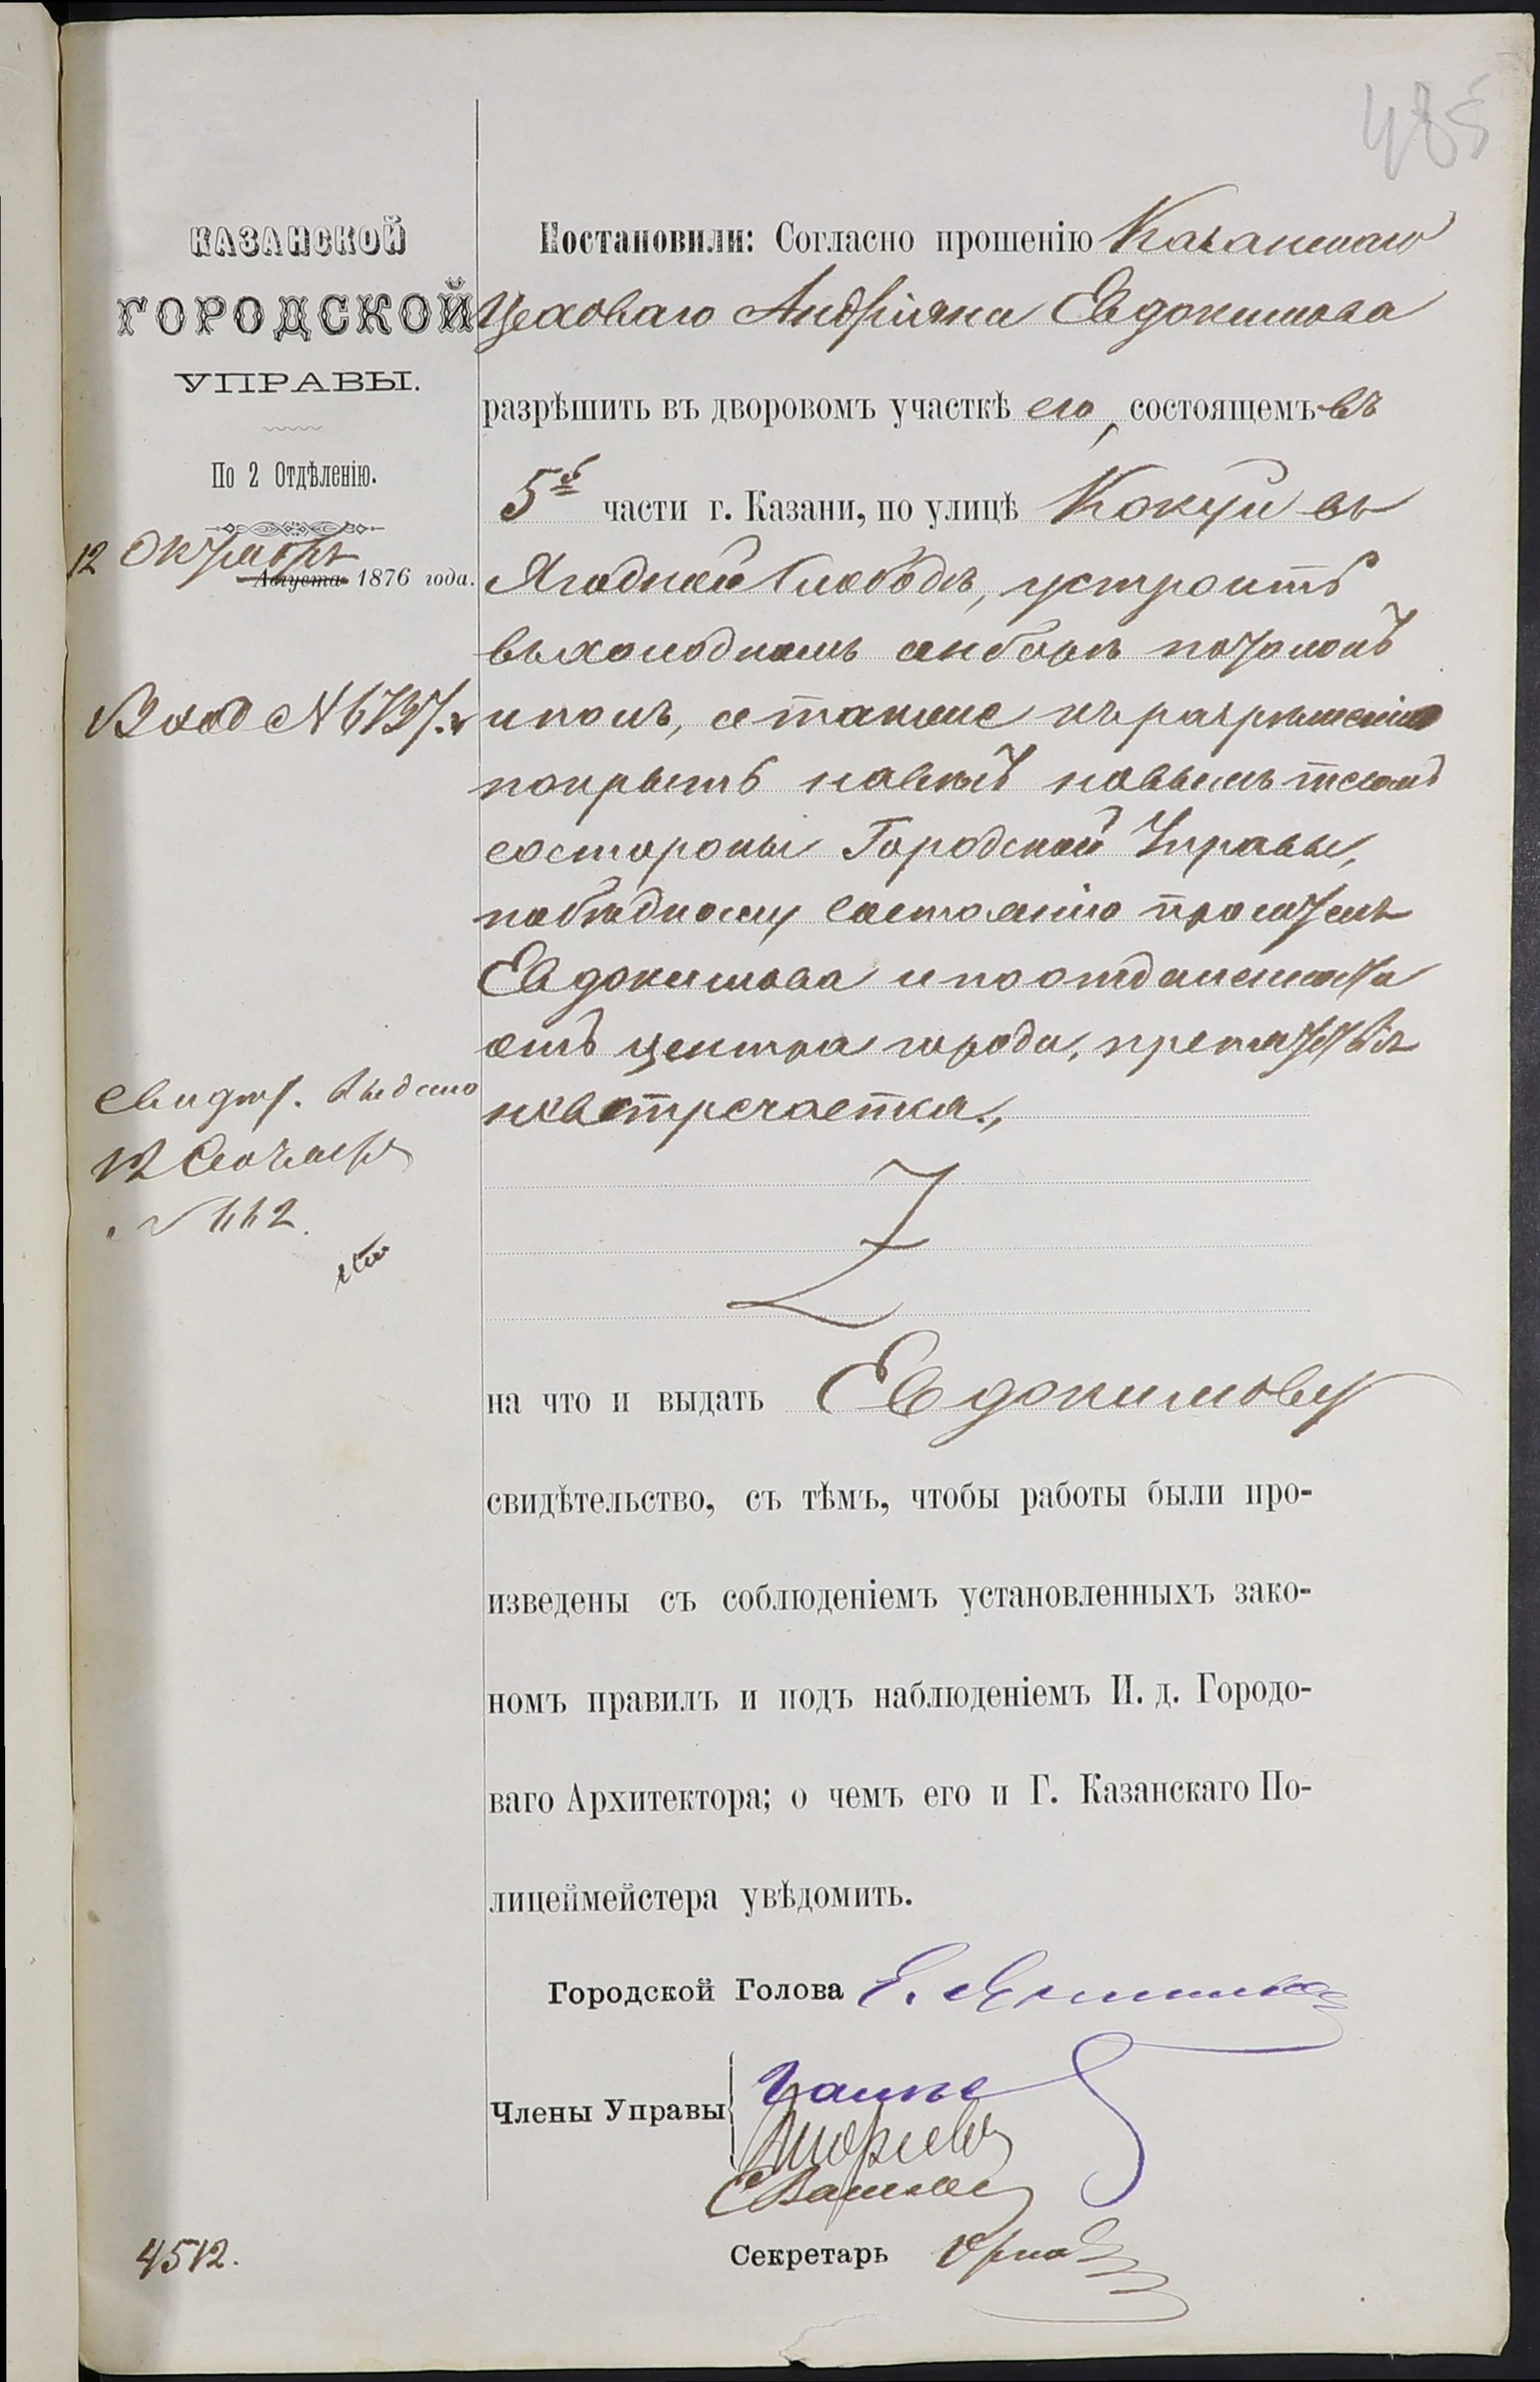 485
КАЗАНСКОЙ
ГОРОДСКОЙ
УПРАВЫ.
По 2 Отдѣленію.
12 Октября
Августа 1876 года.
Вход № 6737.
Свидет. выдано
12 Октября
№ 1112.
4512.
Постановили: Согласно прошенію Казанскаго
Цеховаго Андріяна Евдокимова
разрѣшить въ дворовомъ участкѣ его, состоящемъ въ
5й части г. Казани, по улицѣ Кокуй въ
Ягодной Слободѣ, устроить
въ холодномъ анбарѣ потолокъ
и полъ, а также къ разрѣшенію
покрыть навѣсъ новымъ тесомъ
со стороны Городской Управы,
по бѣдному состоянію просителя
Евдокимова и по отдаленности
отъ центра города, препятствія
не встречается.,
на что и выдать Евдокимову
свидѣтельство, съ тѣмъ, чтобы работы были про-
изведены съ соблюденіемъ установленныхъ зако-
номъ правилъ и подъ наблюденіемъ И. д. Городо-
ваго Архитектора; о чемъ его и Г. Казанскаго По-
лицеймейстера увѣдомить.
Городской Голова
Члены Управы
Секретарь